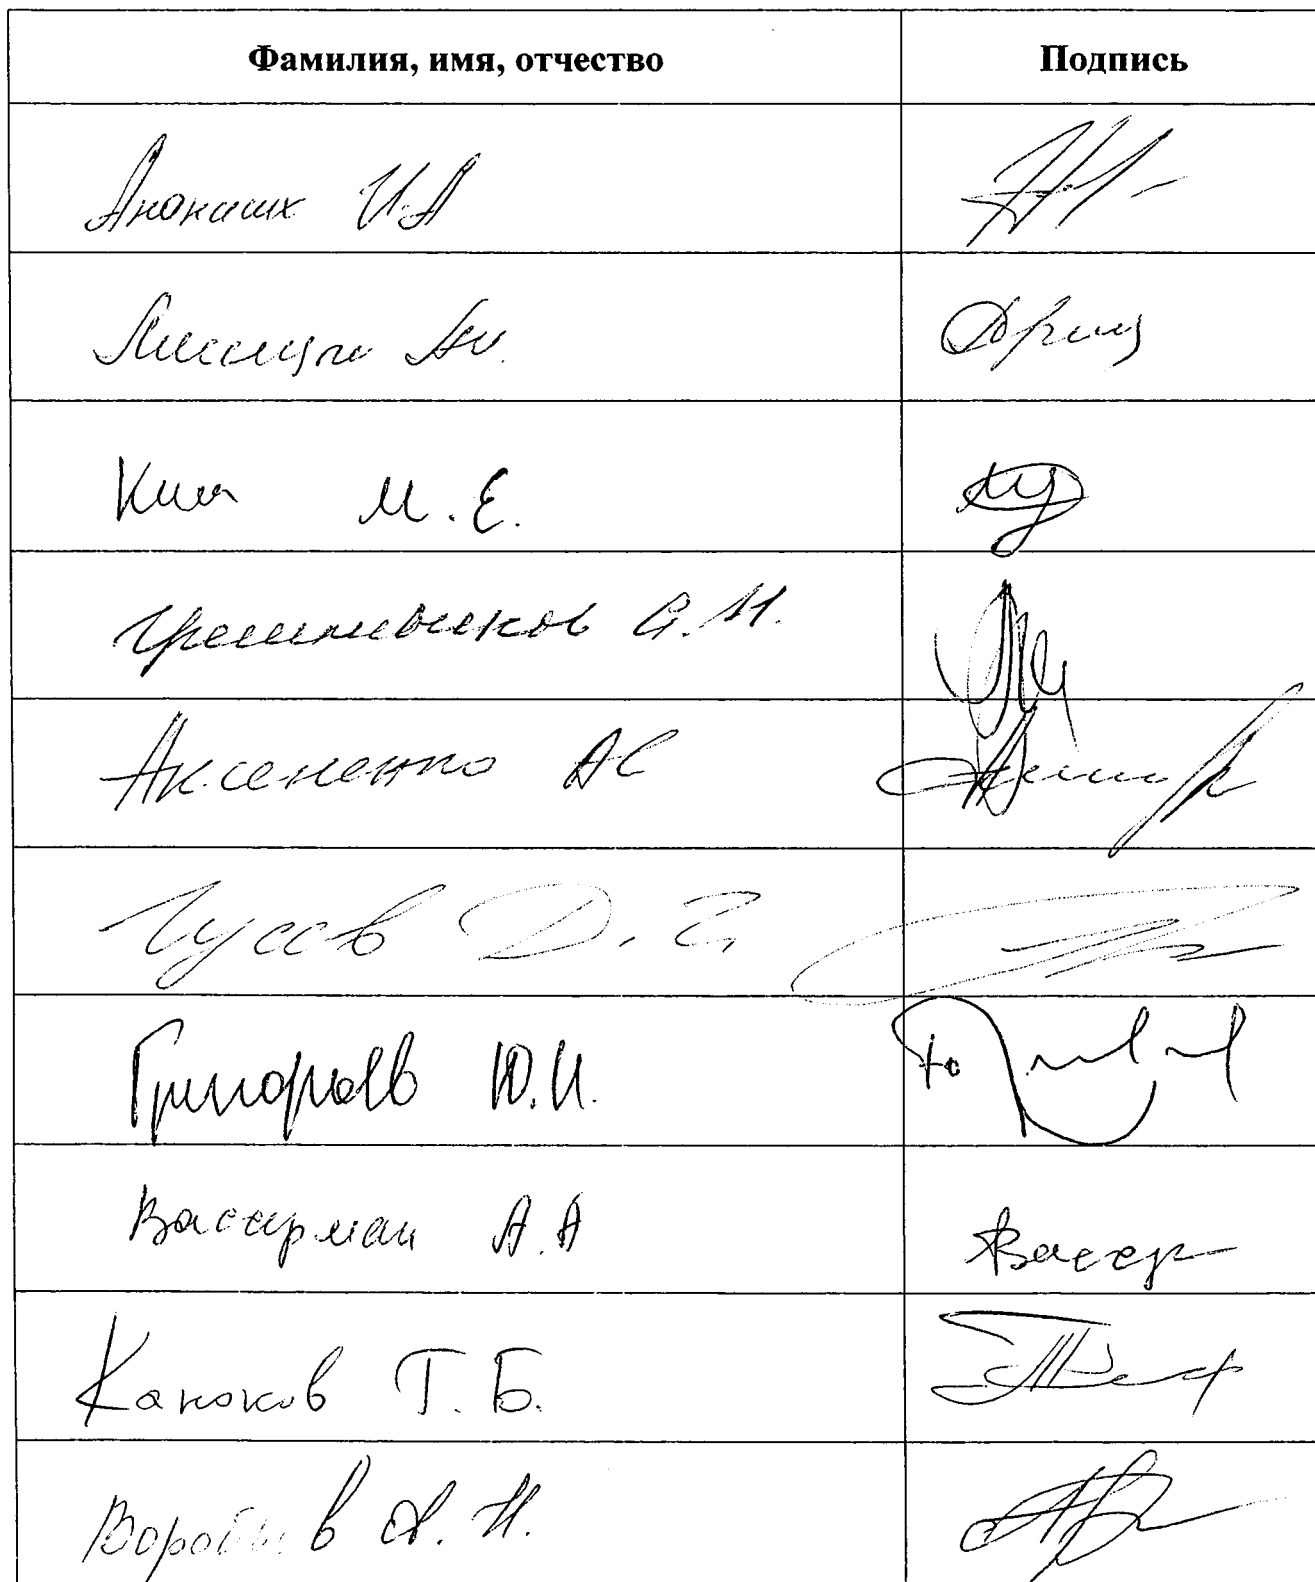 Фамилия, имя, отчество Подпись
Ананских И.А
Лисицын А.И.
Ким М.Е.
Грешневиков А.Н.
Аксененко АС
Гусев Д.Г.
Григорьев Ю.И.
Вассерман А.А Вассер
Каноков Т.Б.
Воробьев А.Н.